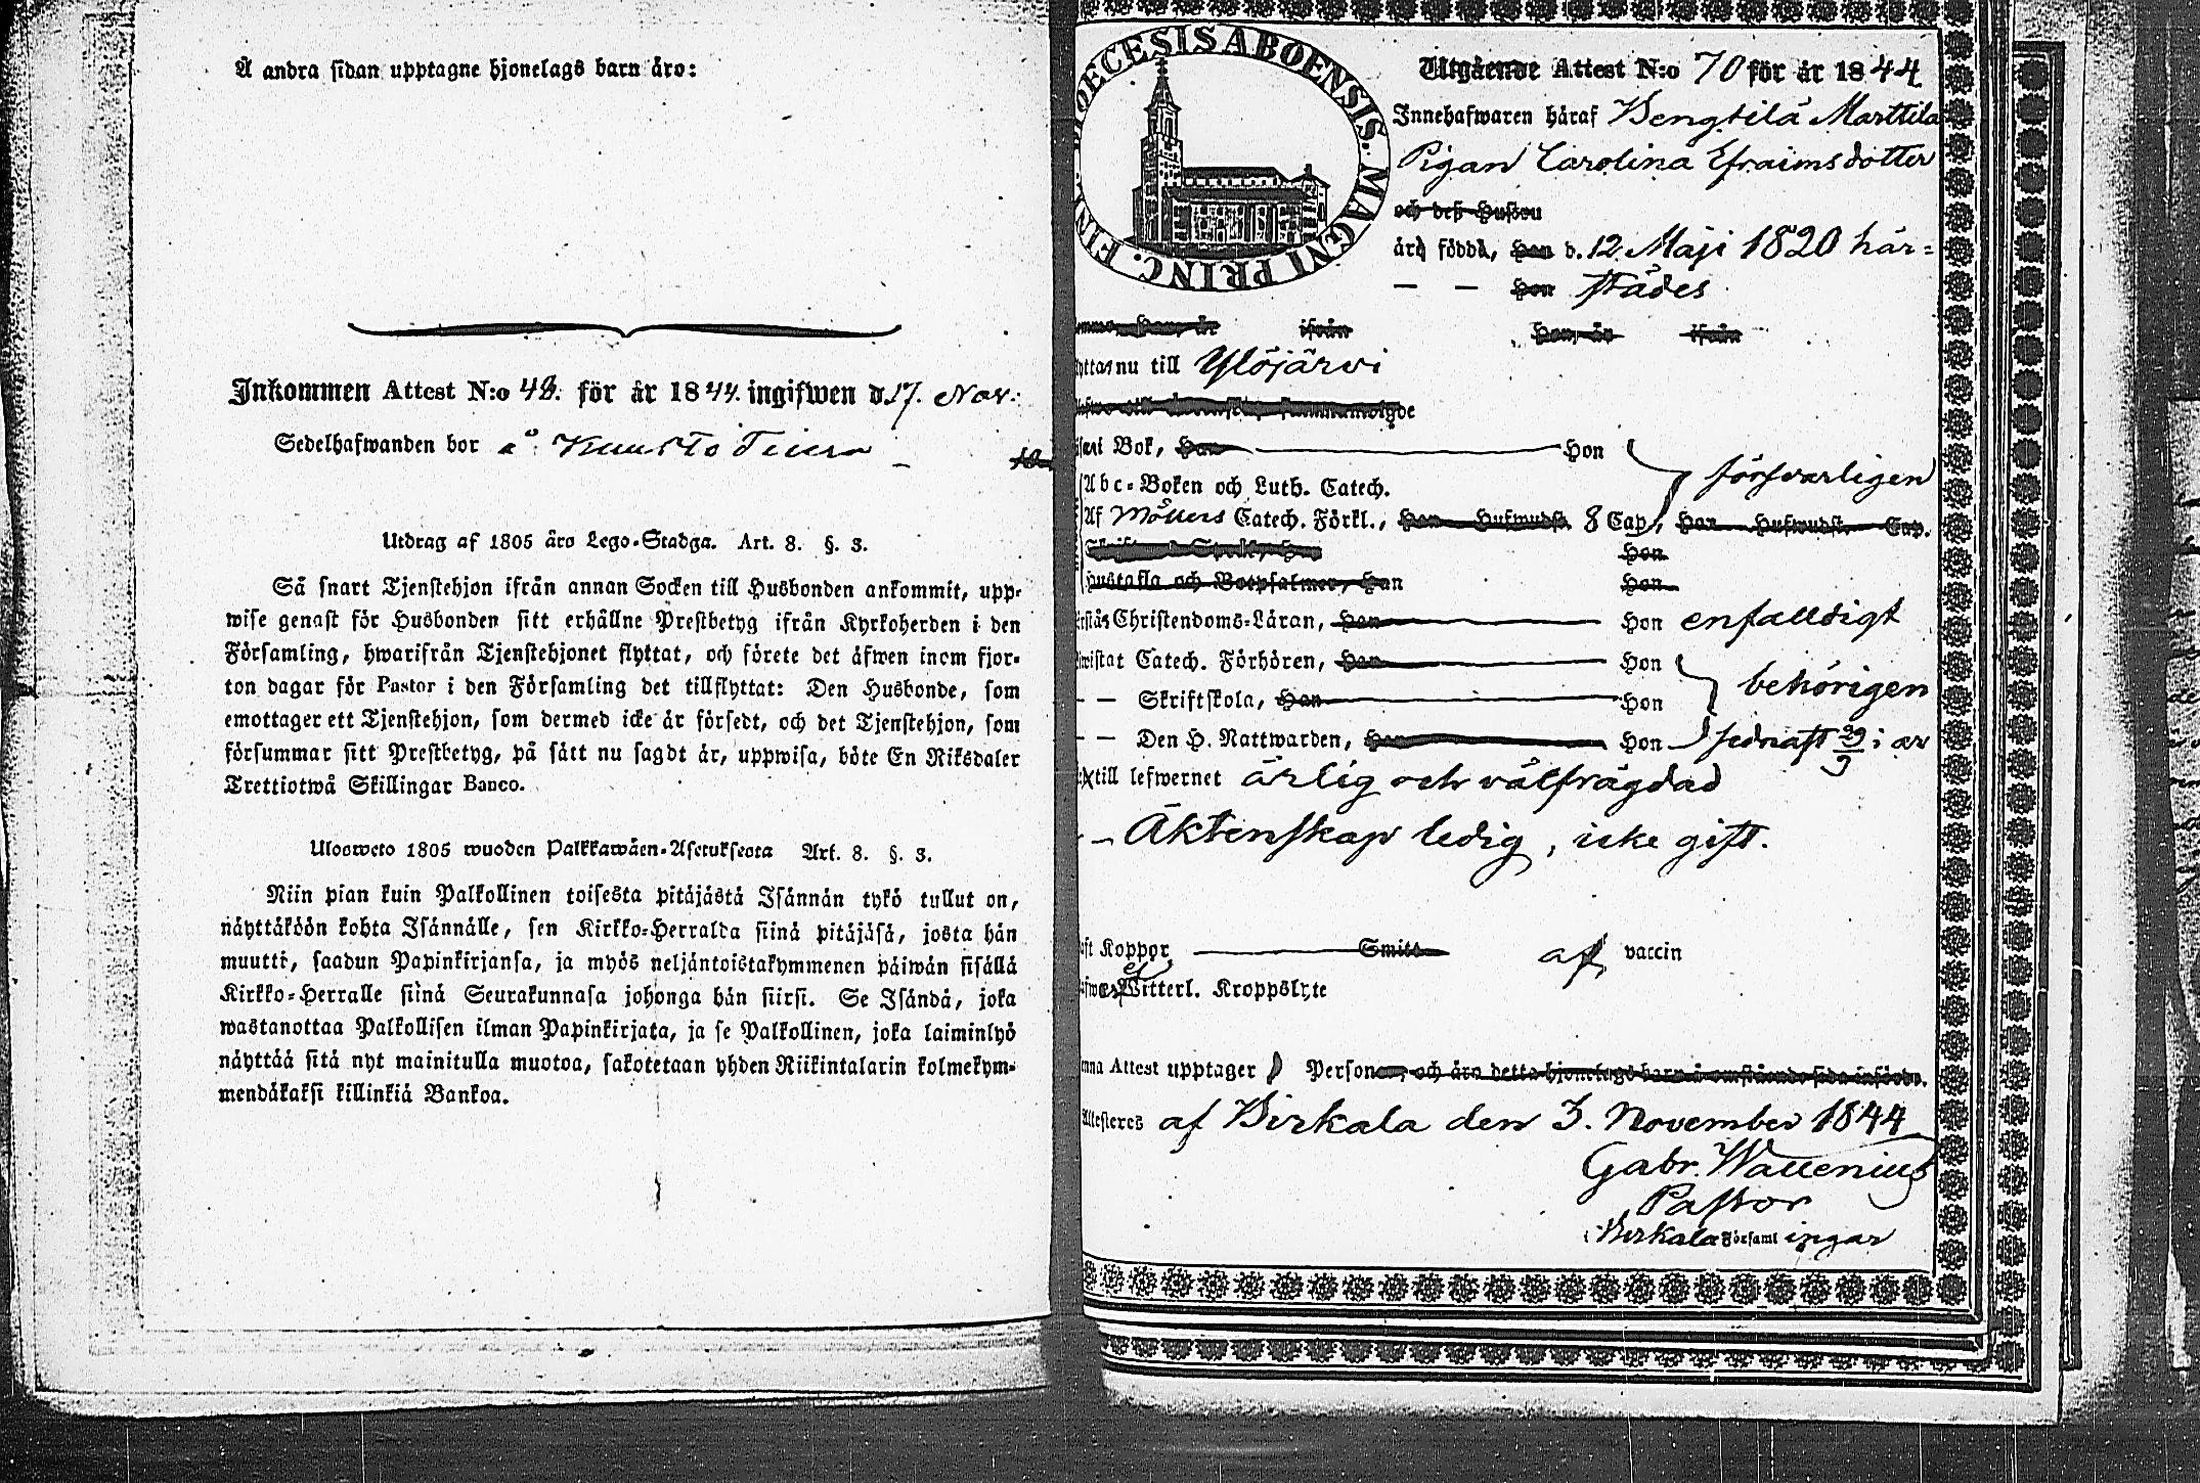 Å andra sidan upptagne hjonelags barn äro:
Inkommen Attest N:o 48. för år 1844. ingifwen d. 17. Nov:
Sedelhafwanden bor å
Utdrag af 1805 års Lego-Stadga. Art. 8. §. 3.
Så snart Tjenstehjon ifrån annan Socken till Husbonden ankommit, upp-
wise genast för Husbonden sitt erhållne Prestbetyg ifrån Kyrkoherden i den
Församling, hwarifrån Tjenstehjonet flyttat, och förete det äfwen inom fjor-
ton dagar för Pastor i den Församling det tillflyttat: Den Husbonde, som
emottager ett Tjenstehjon, som dermed icke är försedt, och det Tjenstehjon, som
försummar sitt Prestbetyg, på sätt nu sagdt är, uppwisa, böte En Riksdaler
Trettiotwå Skillingar Banco.
Ulosweto 1805 wuoden Palkkawäen-Asetuksesta Art. 8. §. 3.
Niin pian kuin Palkollinen toisesta pitäjästä Isännän tykö tullut on,
näyttäköön kohta Isännälle, sen Kirkko-Herralda siinä pitäjäsä, josta hän
muutti, saadun Papinkirjansa, ja myös neljäntoistakymmenen päiwän sisällä
Kirkko-Herralle siinä Seurakunnasa johonga hän siirsi. Se Isändä, joka
wastanottaa Palkollisen ilman Papinkirjata, ja se Palkollinen, joka laiminlyö
näyttää sitä nyt mainitulla muotoa, sakotetaan yhden Riikintalarin kolmekym-
mendäkaksi killinkiä Bankoa.
DIOECESIS ABOENSIS. MAGNI PRINC. FIN
Utgående Attest N:o 70 för år 1844
Innehafwaren häraf Bengtilä Marttila
Pigan Carolina Efraimsdotter
och deß Hustru
äro födda, Han d. 12 Maji 1820 här-
— — Hon städes
Han, är ifrån Hon, är ifrån
nu till Ylöjärvi
Bok, Han Hon försvarligen
Abc-Boken och Luth. Catech.
Af Möllers Catech. Förkl., Han Hufwudst. 8 Cap, Hon Hufwudst. Cap.
Hon
Hustafla och Botpsalmer, Han Hon
Christendoms-Läran, Han Hon enfalldigt
Catech. Förhören, Han Hon behörigen
— — Skriftskola, Han Hon
— — Den H. Nattwarden, Han Hon sednast 29/9 i år
till lefwernet ärlig och välfrägdad
— Äktenskap ledig, icke gift.
Koppor, Smitto af vaccin
ej Witterl. Kroppslyte
Attest upptager 1 Personer, och äro detta hjonelags barn å omstående sida införde.
Attesteres af Birkala den 3. November 1844
Gabr. Wallenius
Pastor
i Birkala Församl ingar